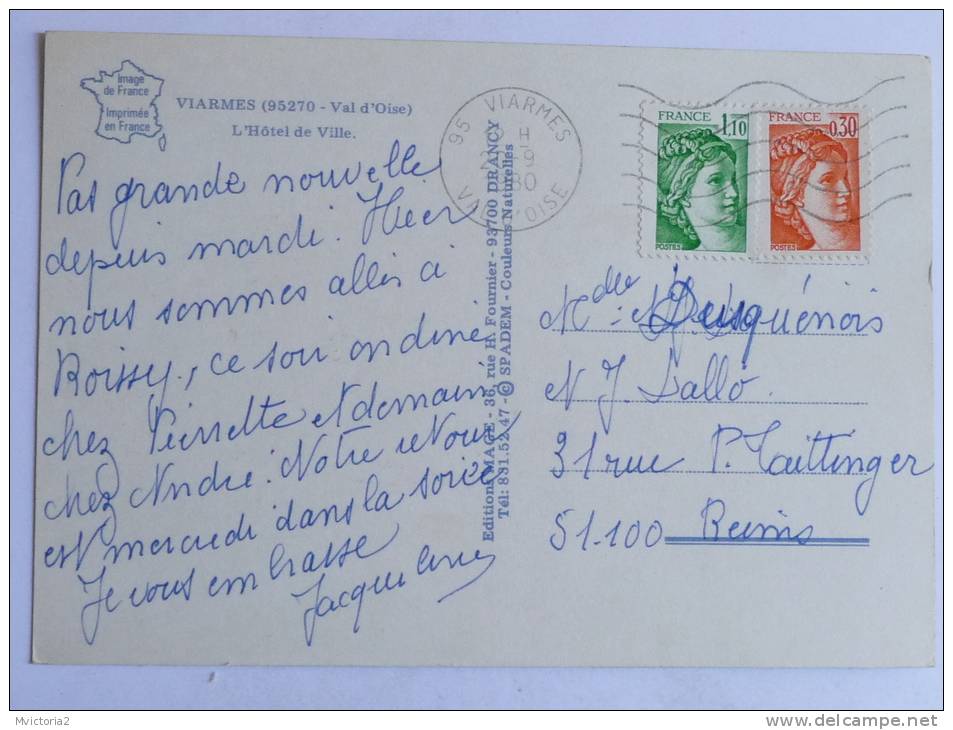 Image
de France
Imprimée
en France
VIARMES (95270 - Val d'Oise)
L'Hôtel de Ville.
Pas grande nouvelle
depuis mardi. Hier
nous sommes allés à
Roissy, ce soir on dîne
chez Pierrette et demain
chez André. Notre retour
est mercredi dans la soirée
Je vous embrasse
Jacqueline
Editions IMAGE - 36, rue H. Fournier - 93700 DRANCY
Tél: 831.52.47 - © SPADEM - Couleurs Naturelles
95 VIARMES
VAL D'OISE
FRANCE
1,10
POSTES
FRANCE
0,30
POSTES
Mdes Duquénois
et J. Lallo
31 rue P. Taittinger
51.100 Reims
Mvictoria2
www.delcampe.net